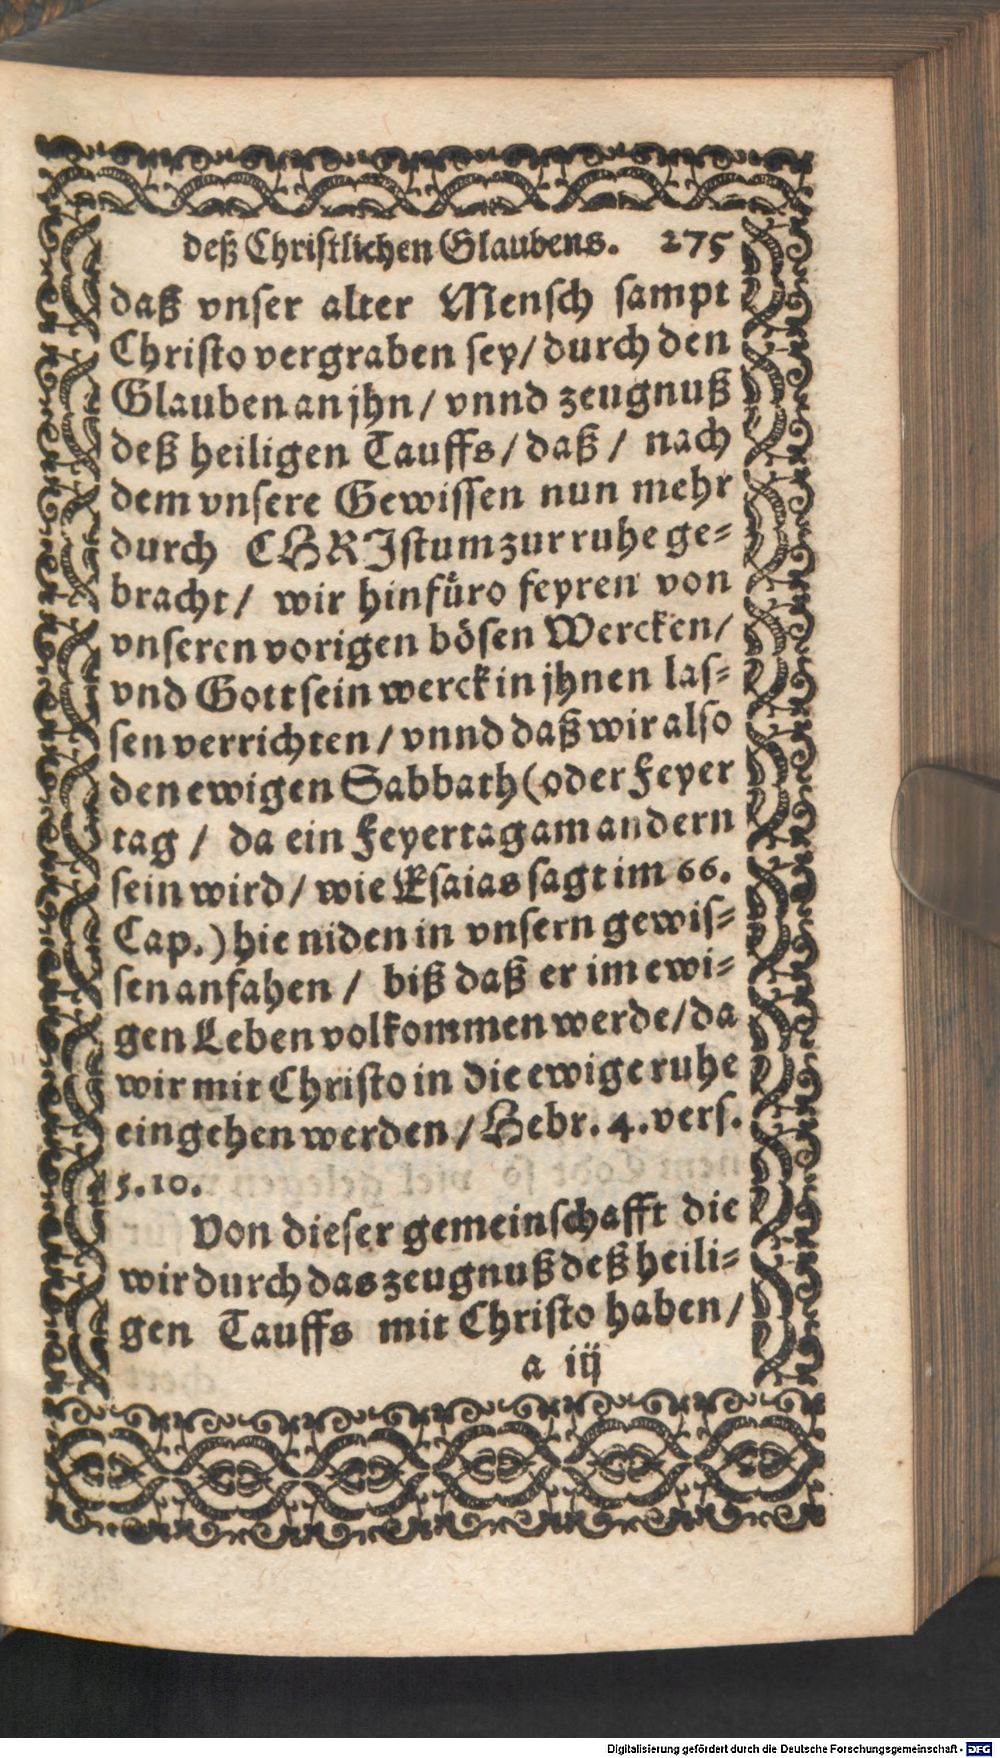 deß Christlichen Glaubens. 275
daß vnser alter Mensch sampt
Christo vergraben sey/ durch den
Glauben an jhn / vnnd zeugnuß
deß heiligen Tauffs / daß / nach
dem vnsere Gewissen nun mehr
durch CHRIstum zur ruhe ge-
bracht / wir hinfüro feyren von
vnseren vorigen bösen Wercken/
vnd Gott sein werck in jhnen las-
sen verrichten / vnnd daß wir also
den ewigen Sabbath (oder Feyer
tag / da ein Feyertag am andern
sein wird / wie Esaias sagt im 66.
Cap.) hie niden in vnsern gewis-
sen anfahen / biß daß er im ewi-
gen Leben volkommen werde/ da
wir mit Christo in die ewige ruhe
eingehen werden / Hebr. 4. vers.
5. 10.
Von dieser gemeinschafft die
wir durch das zeugnuß deß heili-
gen Tauffs mit Christo haben /
a iij
Digitalisierung gefördert durch die Deutsche Forschungsgemeinschaft - DFG